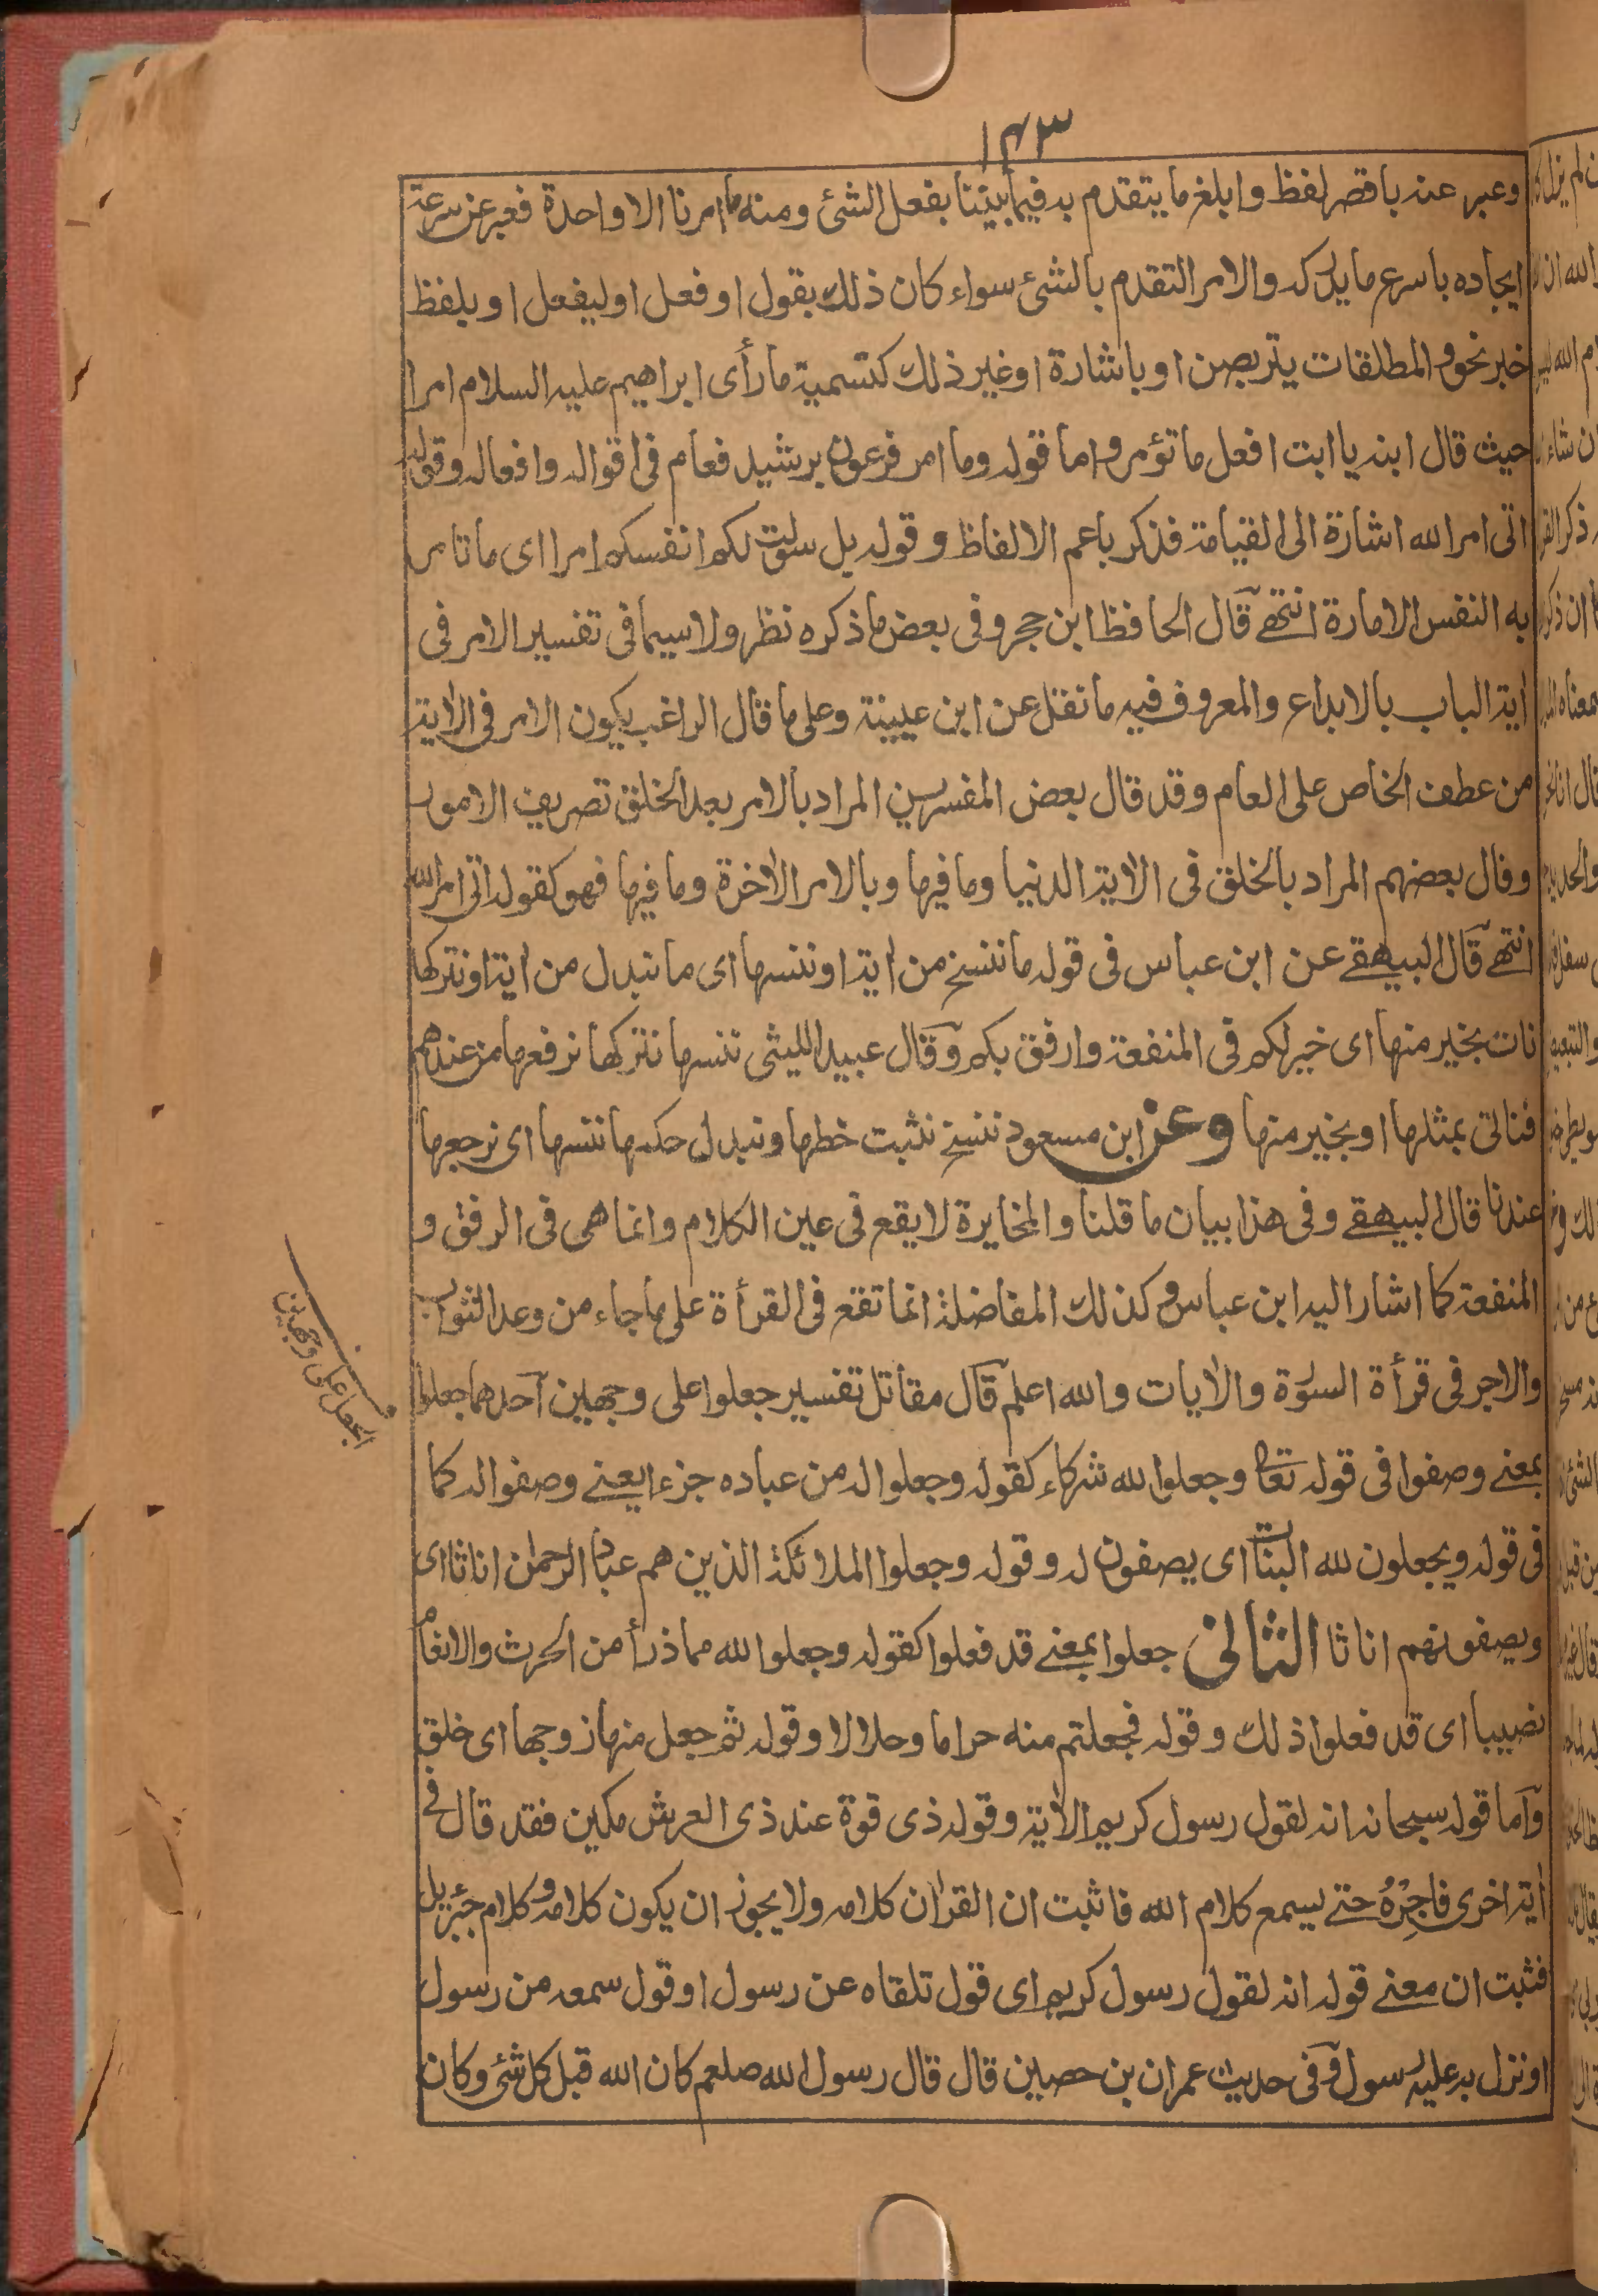 ١٤٣
وعبر عنه باقصر لفظ وابلغ ما يتقدم به فيما بيننا بفعل الشئ ومنه ما امرنا الا واحدة فعبر عن سرعة
ايجاده باسرع ما يدركه والامر التقدم بالشئ سواء كان ذلك بقول او فعل او ليفعل او بلفظ
خبر نحو والمطلقات يتربصن او باشارة او غير ذلك كتسمية ما رأى ابراهيم عليه السلام امرا
حيث قال ابنه يا ابت افعل ما تؤمر واما قوله وما امر فرعون برشيد فعام فى اقواله وافعاله وقوله
اتى امر الله اشارة الى القيامة فذكر باعم الالفاظ وقوله بل سولت لكم انفسكم امرا اى ما تامر
به النفس الامارة انتهے قال الحافظ ابن حجر وفى بعض ما ذكره نظر ولا سيما فى تفسير الامر فى
اية الباب بالابداع والمعروف فيه ما نقل عن ابن عيينة وعلى ما قال الراغب يكون الامر فى الاية
من عطف الخاص على العام وقد قال بعض المفسرين المراد بالامر بعد الخلق تصريف الامور
وقال بعضهم المراد بالخلق فى الاية الدنيا وما فيها وبالامر الاخرة وما فيها فهو كقوله اتى امر الله
انتهے قال البيهقے عن ابن عباس فى قوله ما ننسخ من اية او ننسها اى ما نبدل من اية او نتركها
نات بخير منها اى خير لكم فى المنفعة وارفق بكم وقال عبيد الليثى ننسها نتركها نرفعها من عندهم
فناتى بمثلها او بخير منها وعن ابن مسعود ننسخ نثبت خطها ونبدل حكمها ننسها اى نرجعها
عندنا قال البيهقے وفى هذا بيان ما قلنا والمخايرة لا يقع فى عين الكلام وانما هى فى الرفق و
المنفعة كما اشار اليه ابن عباس وكذلك المفاضلة انما تقع فى القرأة على ما جاء من وعد الثواب
والاجر فى قرأة السورة والايات والله اعلم قال مقاتل تفسير جعلوا على وجهين احدهما جعلوا
بمعنے وصفوا فى قوله تعالى وجعلوا لله شركاء كقوله وجعلوا له من عباده جزءا يعنے وصفوا له كما
فى قوله ويجعلون لله البنات اى يصفون له وقوله وجعلوا الملائكة الذين هم عباد الرحمن اناثا اى
ويصفونهم اناثا الثانى جعلوا بمعنے قد فعلوا كقوله وجعلوا لله مما ذرأ من الحرث والانعام
نصيبا اى قد فعلوا ذلك وقوله فجعلتم منه حراما وحلالا وقوله ثم جعل منها زوجها اى خلق
واما قوله سبحانه انه لقول رسول كريم الاية وقوله ذى قوة عند ذى العرش مكين فقد قال فى
اية اخرى فاجِرْهُ حتے يسمع كلام الله فاثبت ان القران كلامه ولا يجوز ان يكون كلامه وكلام جبرئيل
فثبت ان معنے قوله انه لقول رسول كريم اى قول تلقاه عن رسول او قول سمعه من رسول
او نزل به عليه رسول وفى حديث عمران بن حصين قال قال رسول الله صلعم كان الله قبل كل شئ وكان
الجعل على وجهين